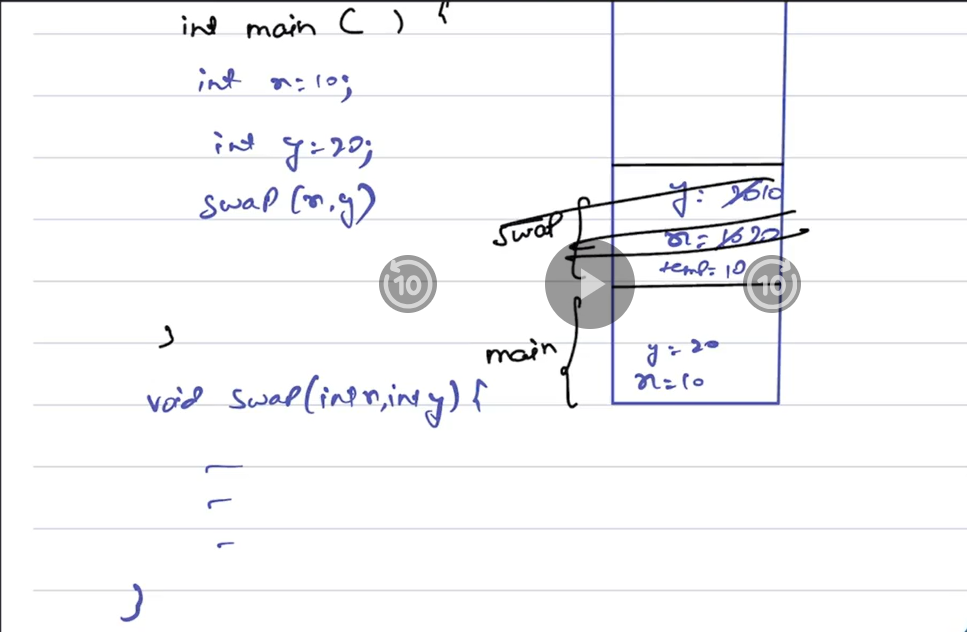 int main ( ) {
int x=10;
int y=20;
swap (x,y)
}
void swap(int x, int y) {
}
swap
y: 20 10
x= 10 20
temp= 10
main
y = 20
x=10
10
10